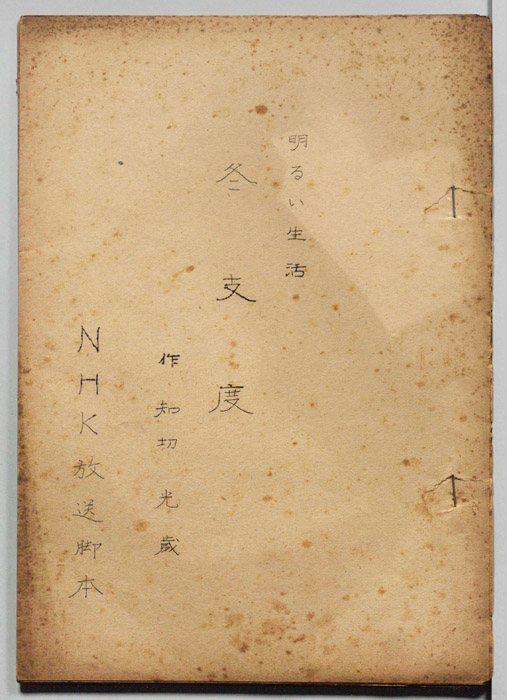 明るい生活
冬支度
作 知切光歳
NHK放送脚本